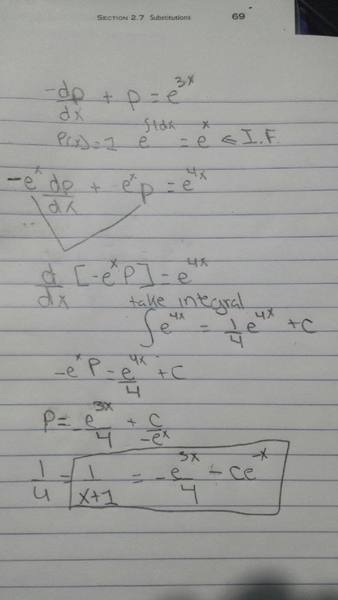 SECTION 2.7 Substitutions 69
-dp/dx + p = e^3x
P(x)=1 e^∫1dx = e^x ⇐ I.F
-e^x dp/dx + -e^x p = e^4x
d/dx [-e^x P] = e^4x
take integral
∫e^4x = 1/4 e^4x + C
-e^x P = e^4x/4 + C
P = -e^3x/4 + C/-e^x
1/4 = 1/x+1 = -e^3x/4 - Ce^-x